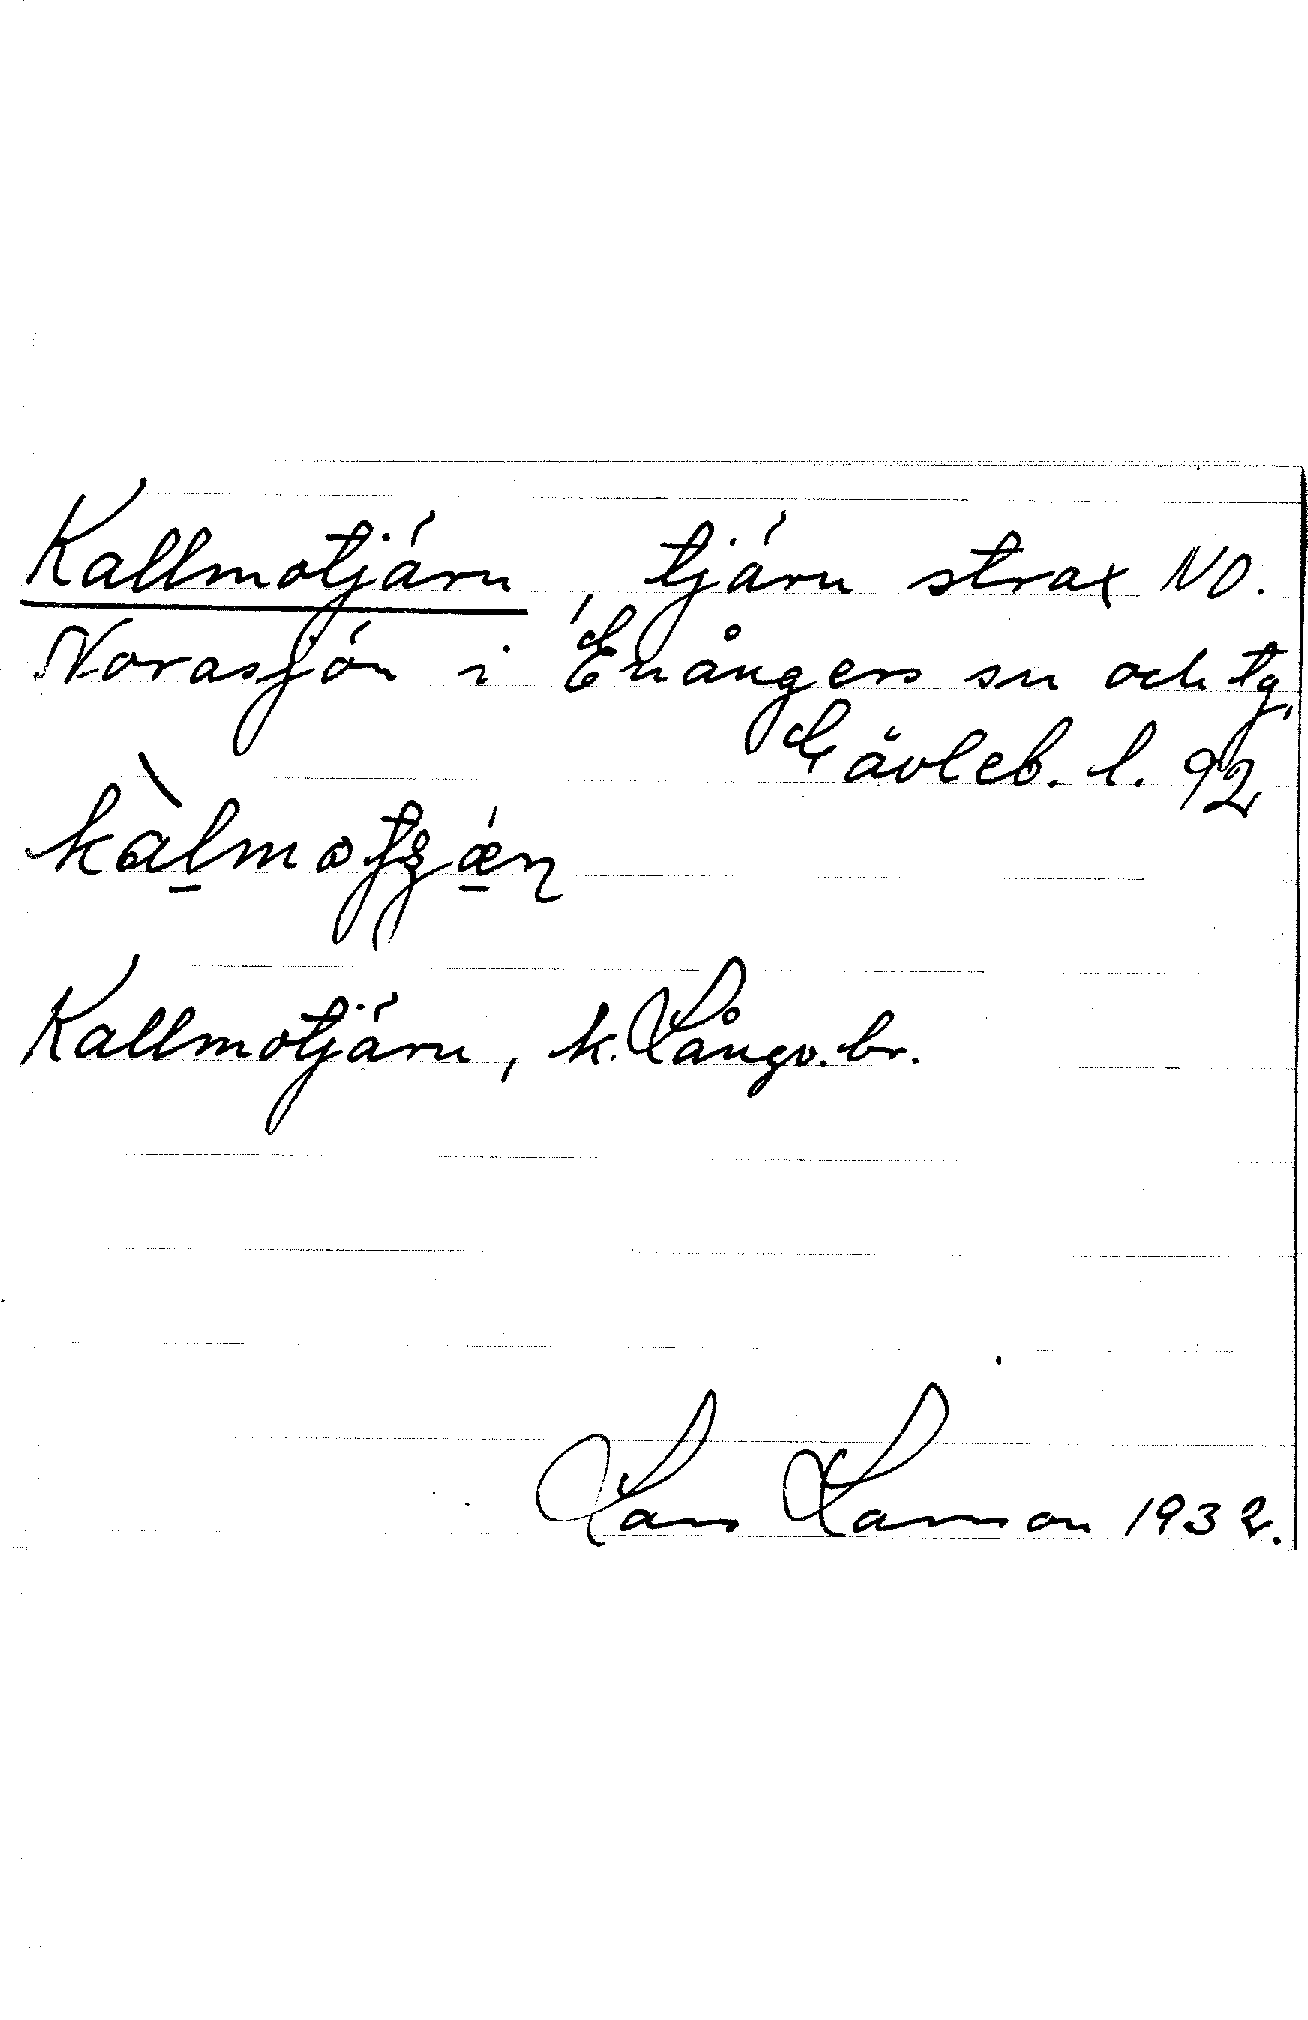 Kallmotjärn, tjärn strax NO.
Norasjön i Enångers sn och tg,
Gävleb. l. 92
Kallmotjärn, k. Långv. br.
Lars Larsson 1932.